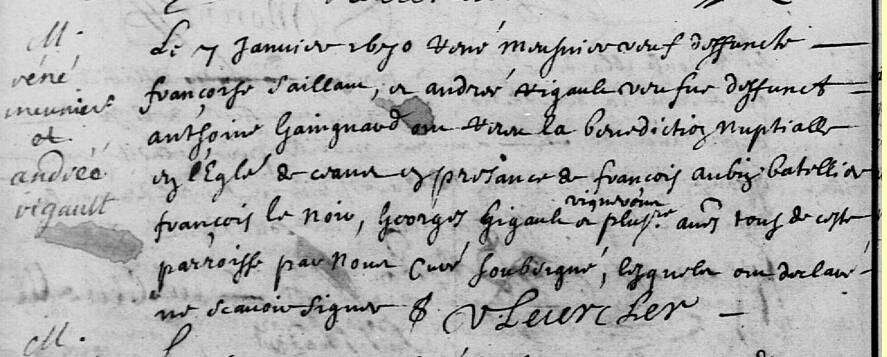 M.
réné
meunier
et
andréé
vigault
Le 7 Janvier 1670 René Meusnier veuf deffuncte
francoise Saillau, et andreé Vigault veufue deffunct
anthoine Gaingnard ont receu la benediction Nuptialle
en l'Eglē de ceans en presance de françois aubin batellier
françois le Noir, Georges Gigault vigneron et plusrs aues tous de ceste
parroisse par Nous Curé soubsigné, lesquels ont declaré
ne scavoir signer
M.